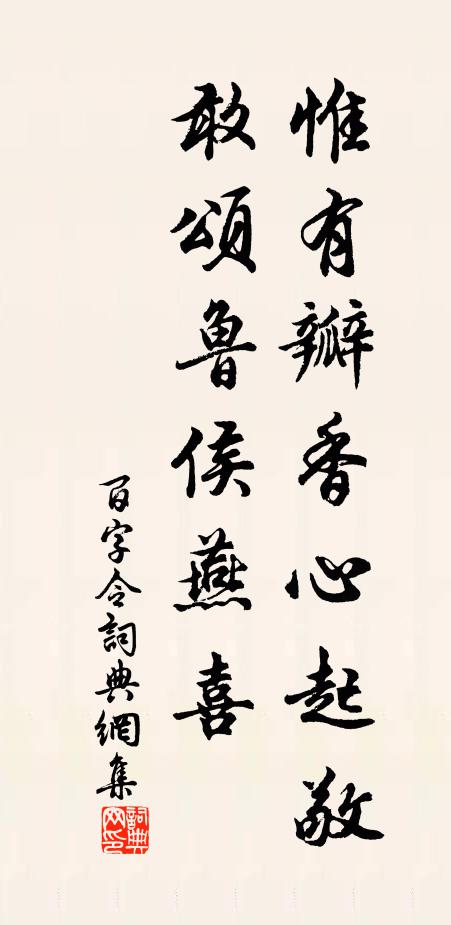 惟有瓣香心起敬
敢頌魯侯燕喜
百字令詞典網集
詞典網印